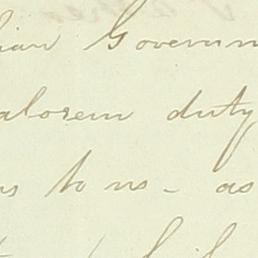 ian Governm
alorem duty
to us - as